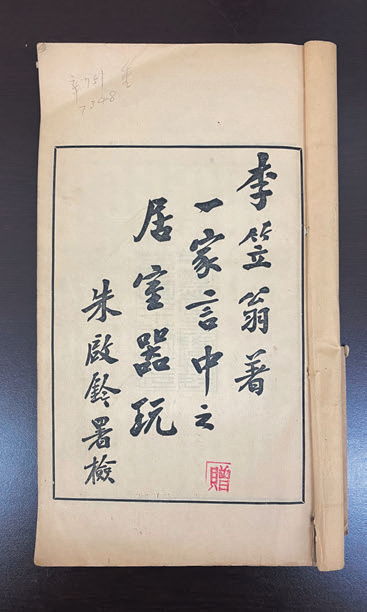 李笠翁著
一家言中之
居室器玩
朱啟鈐署檢
贈
7348